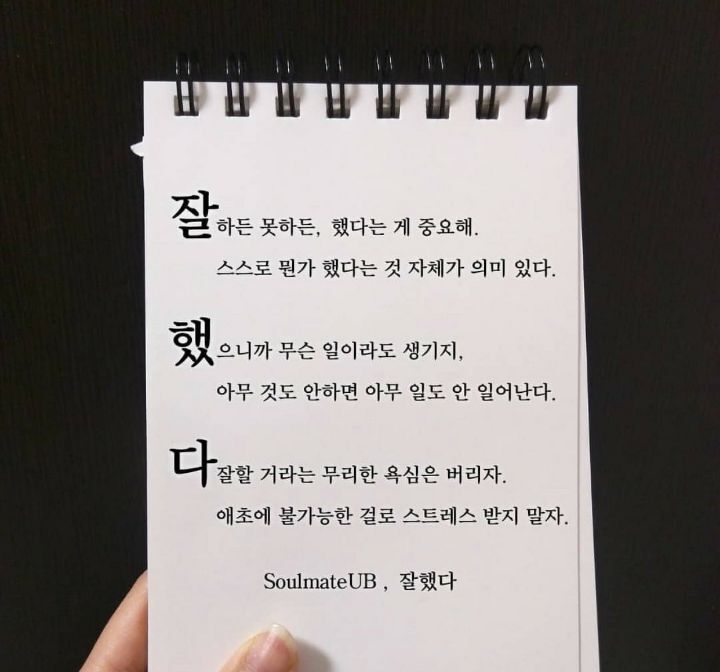 잘하든 못하든, 했다는 게 중요해.
스스로 뭔가 했다는 것 자체가 의미 있다.
했으니까 무슨 일이라도 생기지,
아무 것도 안하면 아무 일도 안 일어난다.
다잘할 거라는 무리한 욕심은 버리자.
애초에 불가능한 걸로 스트레스 받지 말자.
SoulmateUB , 잘했다